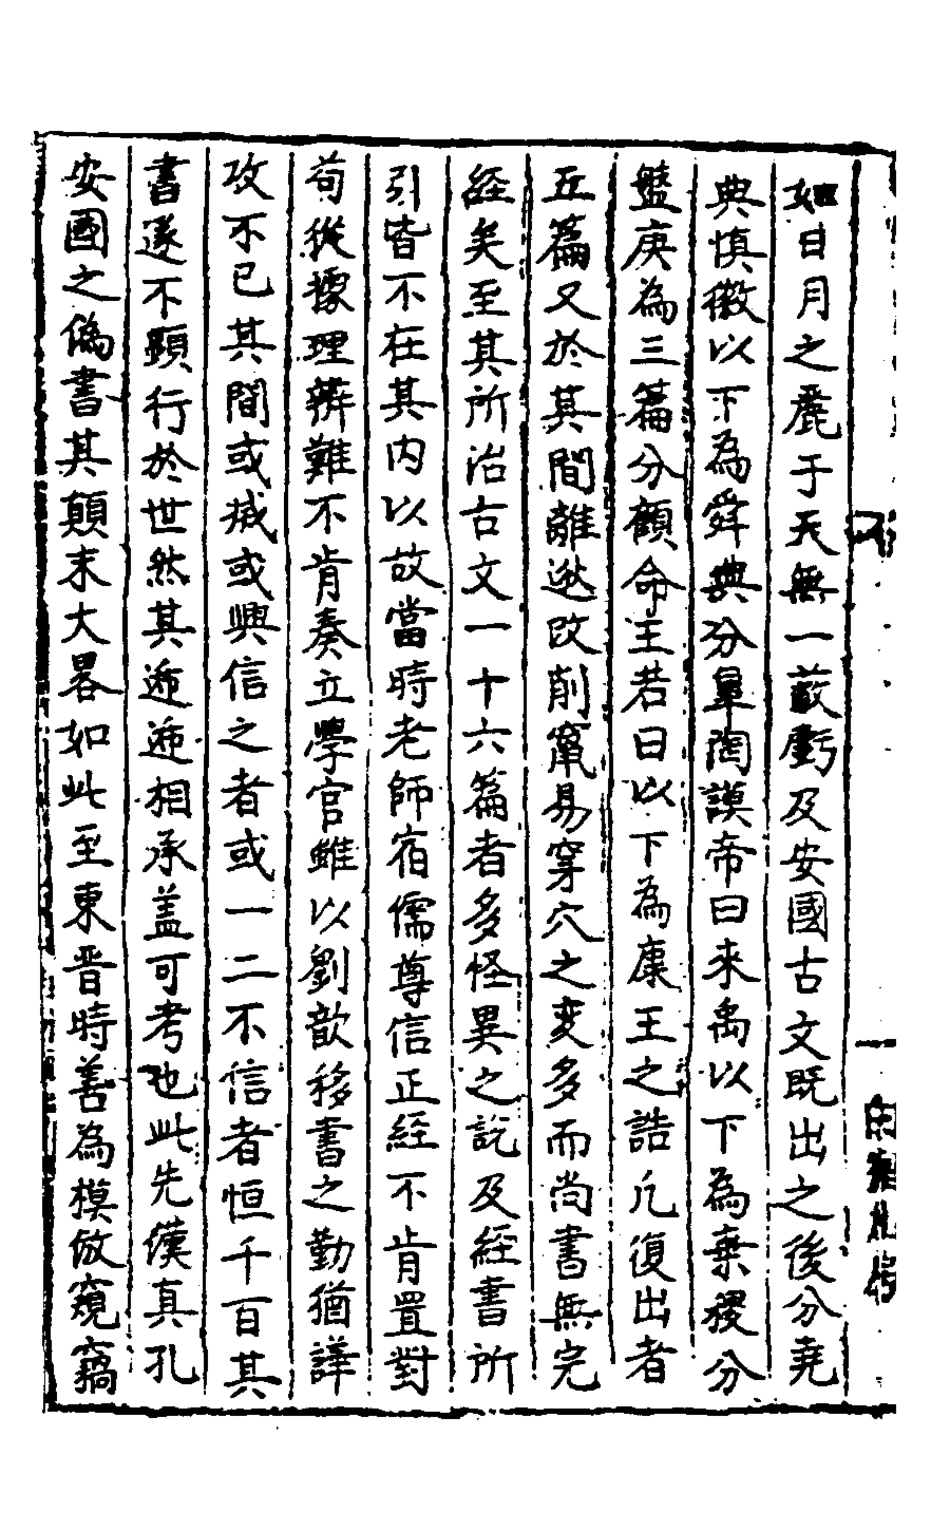 如日月之麗于天無一蔽虧及安國古文既出之後分堯
典慎徽以下為舜典分臯陶謨帝曰來禹以下為棄稷分
盤庚為三篇分顧命王若曰以下為康王之誥凡復出者
五篇又於其間離逖改削竄易穿穴之變多而尚書無完
經矣至其所治古文一十六篇者多怪異之說及經書所
引皆不在其內以故當時老師宿儒尊信正經不肯置對
苟從據理辨難不肯奏立學官雖以劉歆移書之勤猶譁
攻不已其間或滅或興信之者或一二不信者恒千百其
書遂不顯行於世然其遞遞相承盖可考也此先漢真孔
安國之偽書其顛末大畧如此至東晋時善為模倣窺竊